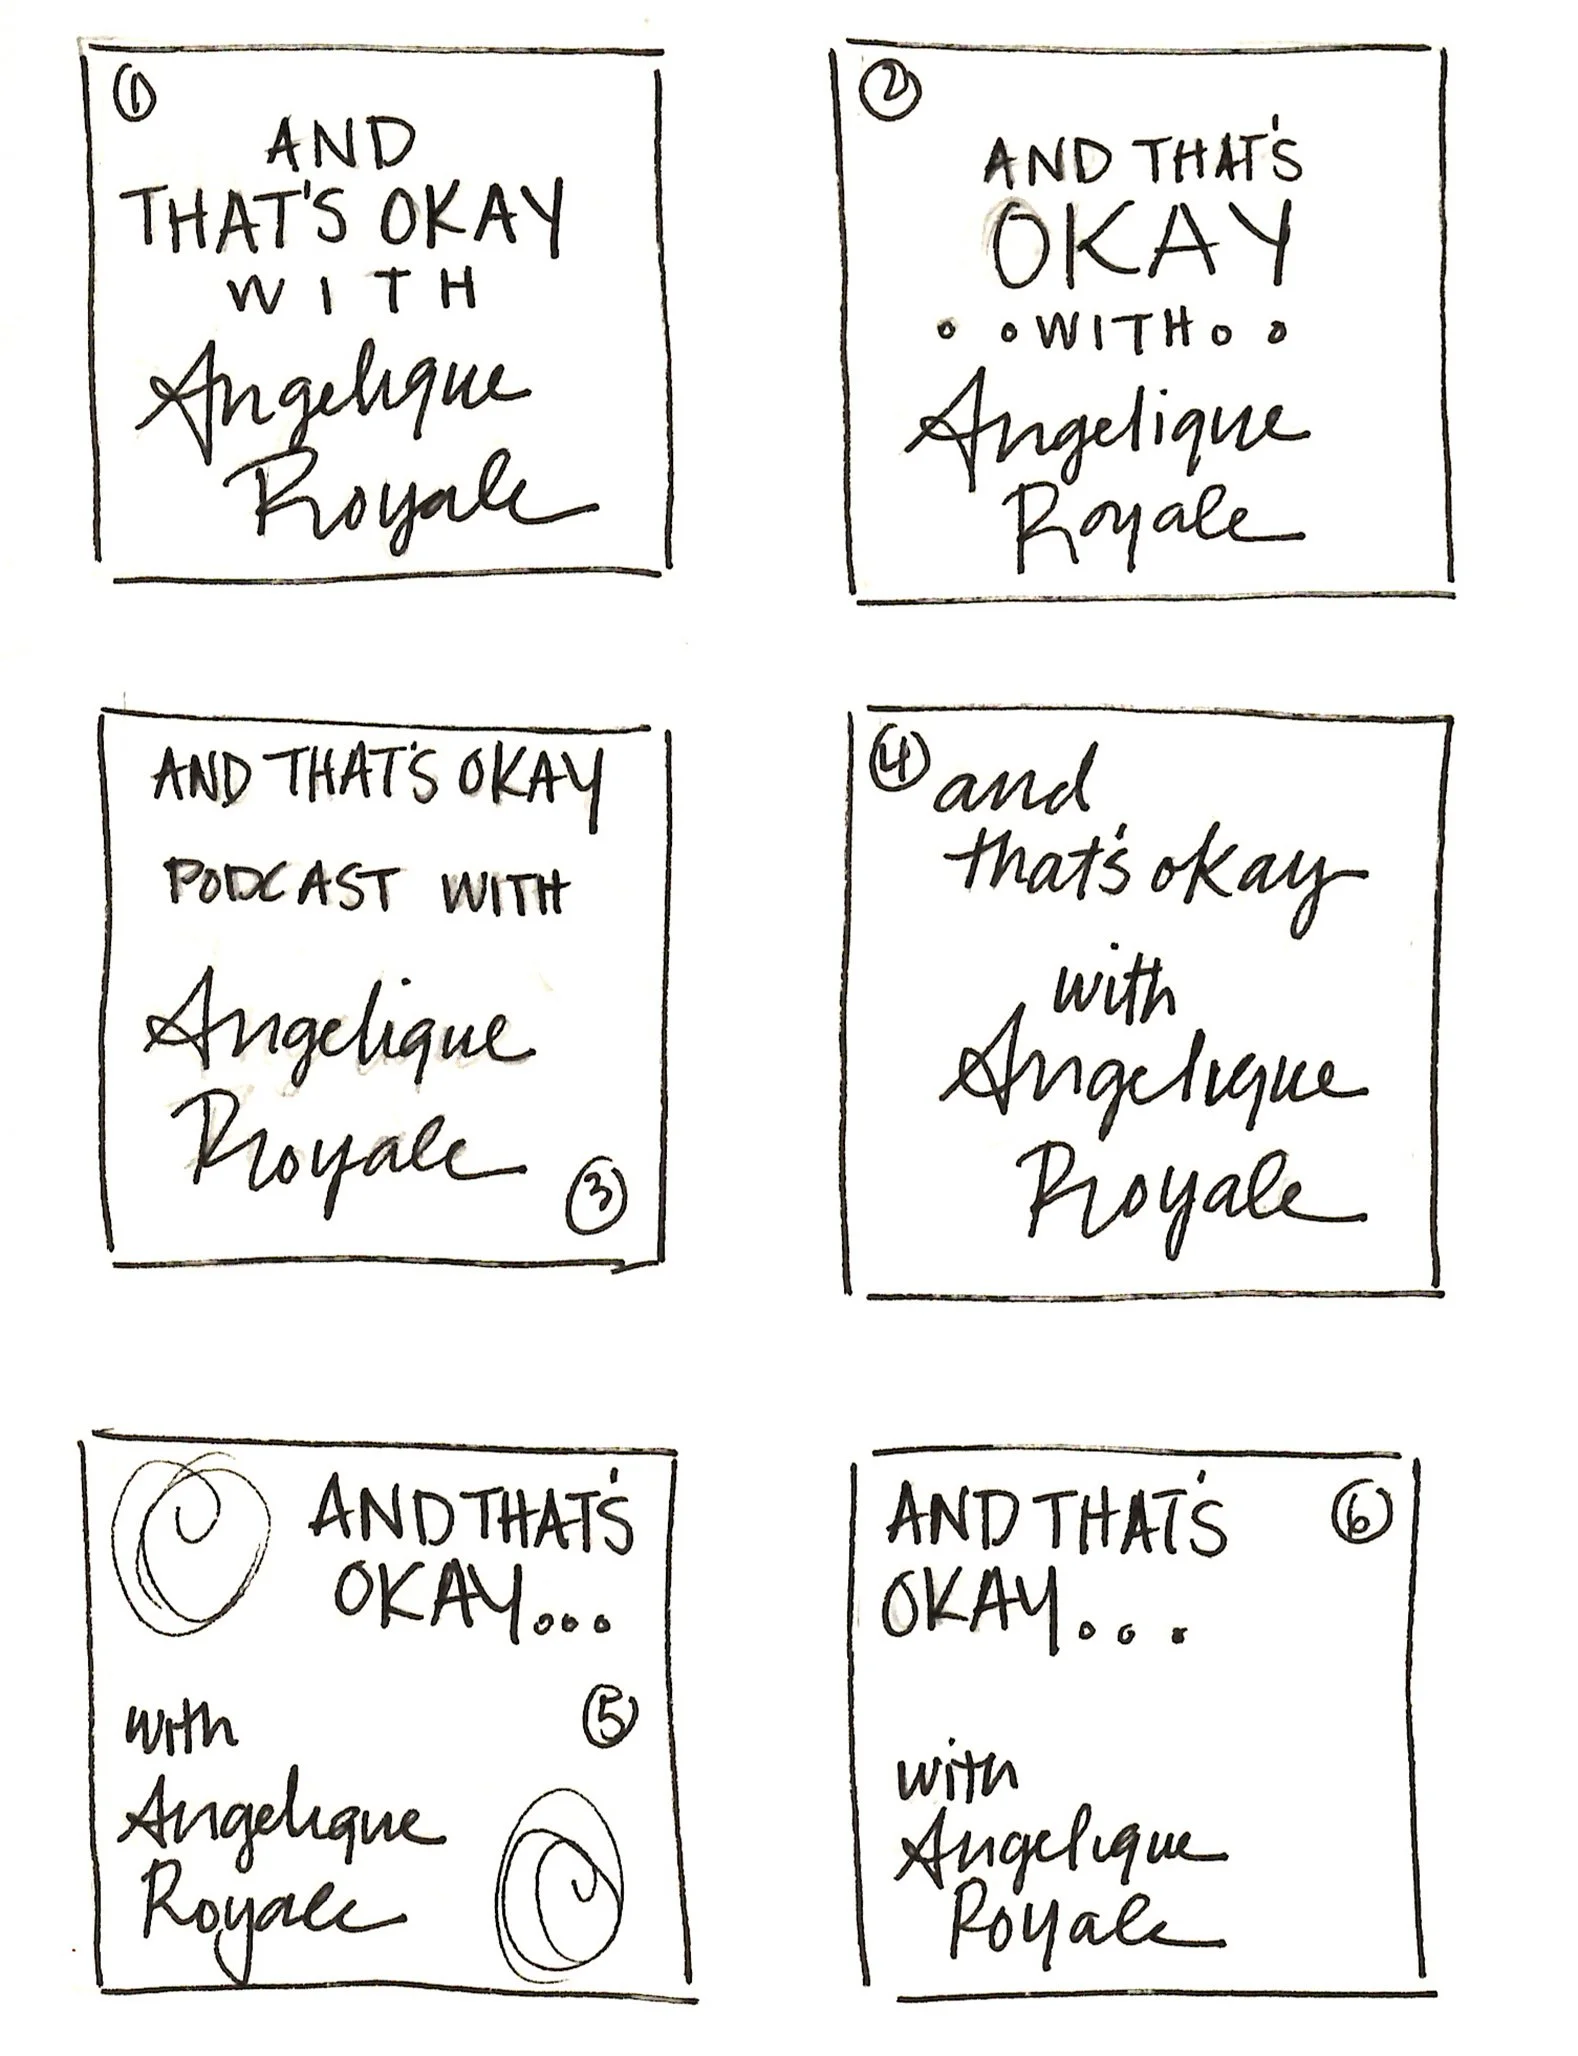 ①
AND
THAT'S OKAY
WITH
Angelique
Royale
②
AND THAT'S
OKAY
. . WITH . .
Angelique
Royale
AND THAT'S OKAY
PODCAST WITH
Angelique
Royale
③
④
and
that's okay
with
Angelique
Royale
AND THAT'S
OKAY...
⑤
with
Angelique
Royale
AND THAT'S ⑥
OKAY...
with
Angelique
Royale